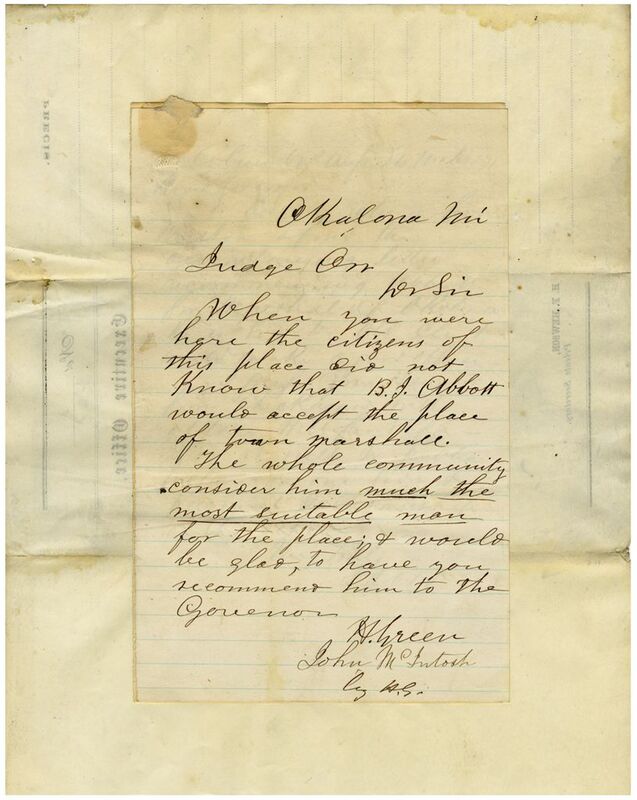 Okalona Mi
Judge Orr
Dr Sir
When you were
here the citizens of
this place did not
know that B. J. Abbott
would accept the place
of town marshall.
The whole community
consider him much the
most suitable man
for the place; & would
be glad, to have you
recommend him to the
Governor
H. Green
John McIntosh
by H.G.
PRECIS.
Executive Office
Private Secretary.